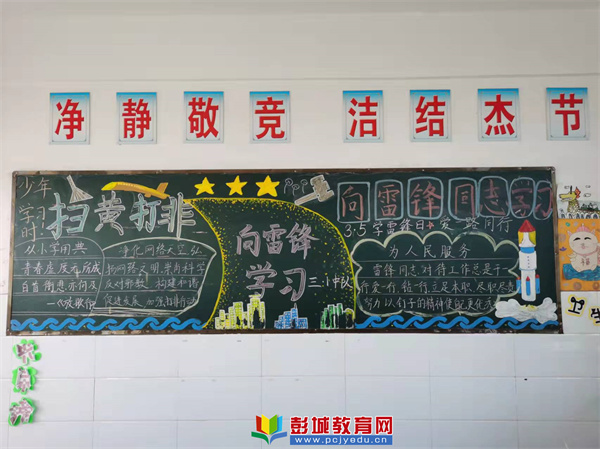 净静敬竞 洁结杰节
少年
学习
时
扫黄打非
从小学用典
青春虚度无所成
白首衔悲亦何及
净化网络天空
扬网络文明 崇尚科学
反对邪教 构建和谐
促进发展
向雷锋
学习
三(1)中队
向雷锋同志学习
3.5学雷锋日 爱路同行
为人民服务
雷锋同志对待工作总是干一
行爱一行,钻一行,立足本职,尽职尽责
努力以钉子的精神使
卫生
彭城教育网
www.pcjyedu.cn